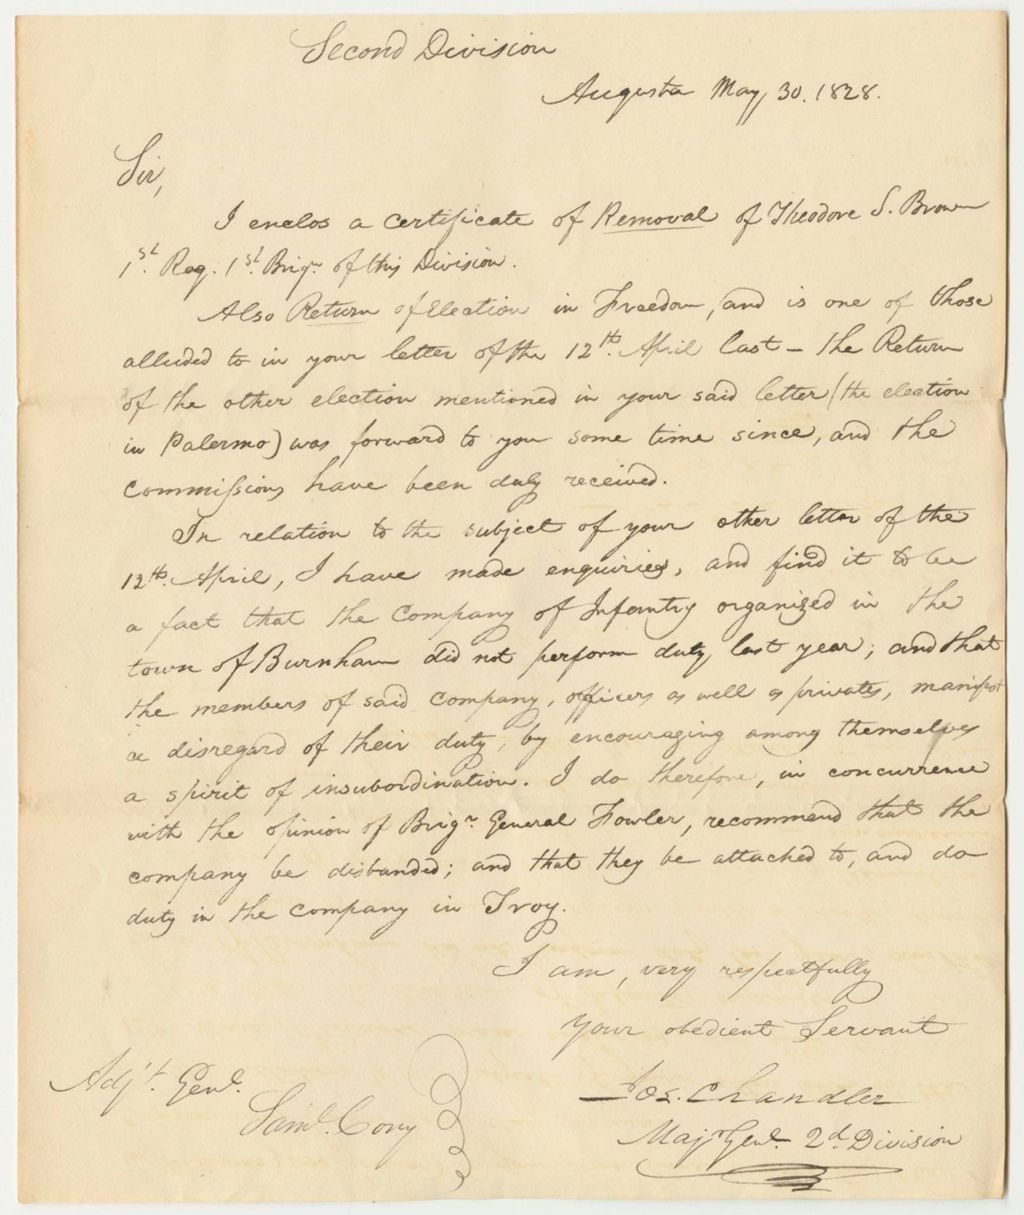 Second Division
Augusta May, 30. 1828.
Sir,
I enclos a certificate of Removal of Theodore S. Brown
1st. Reg. 1st. Brigr. of this Division.
Also Return of Election in Freedom, and is one of those
alluded to in your letter of the 12th. April last – the Return
of the other election mentioned in your said letter (the election
in Palermo) was forward to you some time since, and the
commissions have been duly received.
In relation to the subject of your other letter of the
12th. April, I have made enquiries, and find it to be
a fact that the company of Infantry organized in the
town of Burnham did not perform duty, last year; and that
the members of said company, officers as well as privates, manifest
a disregard of their duty, by encouraging among themselves
a spirit of insubordination. I do therefore, in concurrence
with the opinion of Brigr. General Fowler, recommend that the
company be disbanded; and that they be attached to, and do
duty in the company in Troy.
I am, very respectfully
Your obedient Servant
Jos. Chandler
Majr Genl. 2d. Division
Adj't. Genl.
Saml. Cony